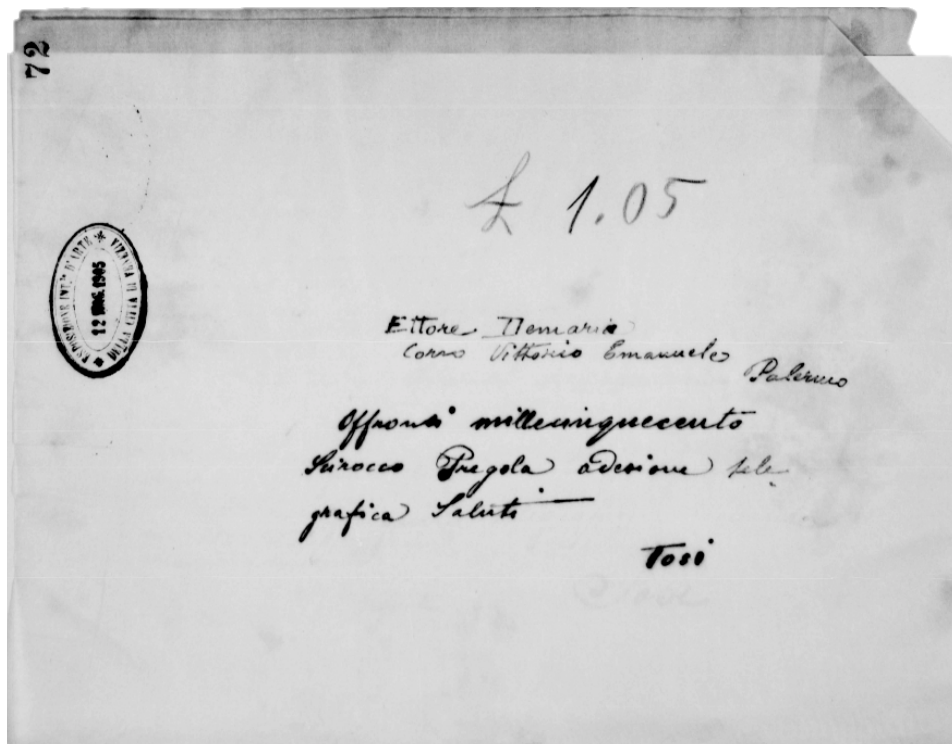 72
£ 1.05
ESPOSIZIONE INT.LE D'ARTE
DELLA CITTÀ DI VENEZIA
12 1905
Ettore Demaria
Corso Vittorio Emanuele
Palermo
Offronsi millecinquecento
Scirocco Pregola adesione tele-
grafica Saluti
Tosi